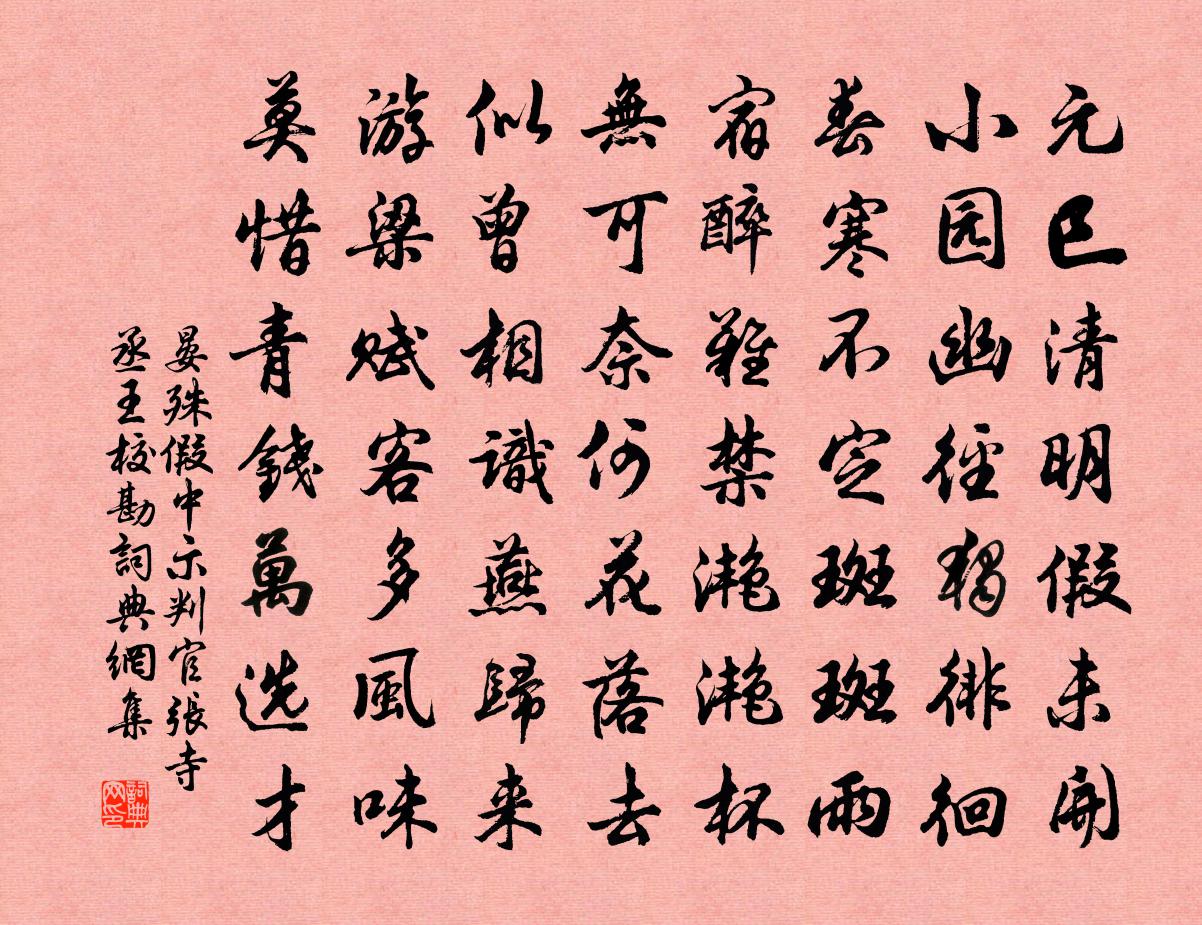 元巳清明假未開
小园幽徑獨徘徊
春寒不定斑斑雨
宿醉難禁灔灔杯
無可奈何花落去
似曾相識燕歸来
游梁赋客多風味
莫惜青錢萬选才
晏殊假中示判官張寺
丞王校勘詞典網集
詞典网印